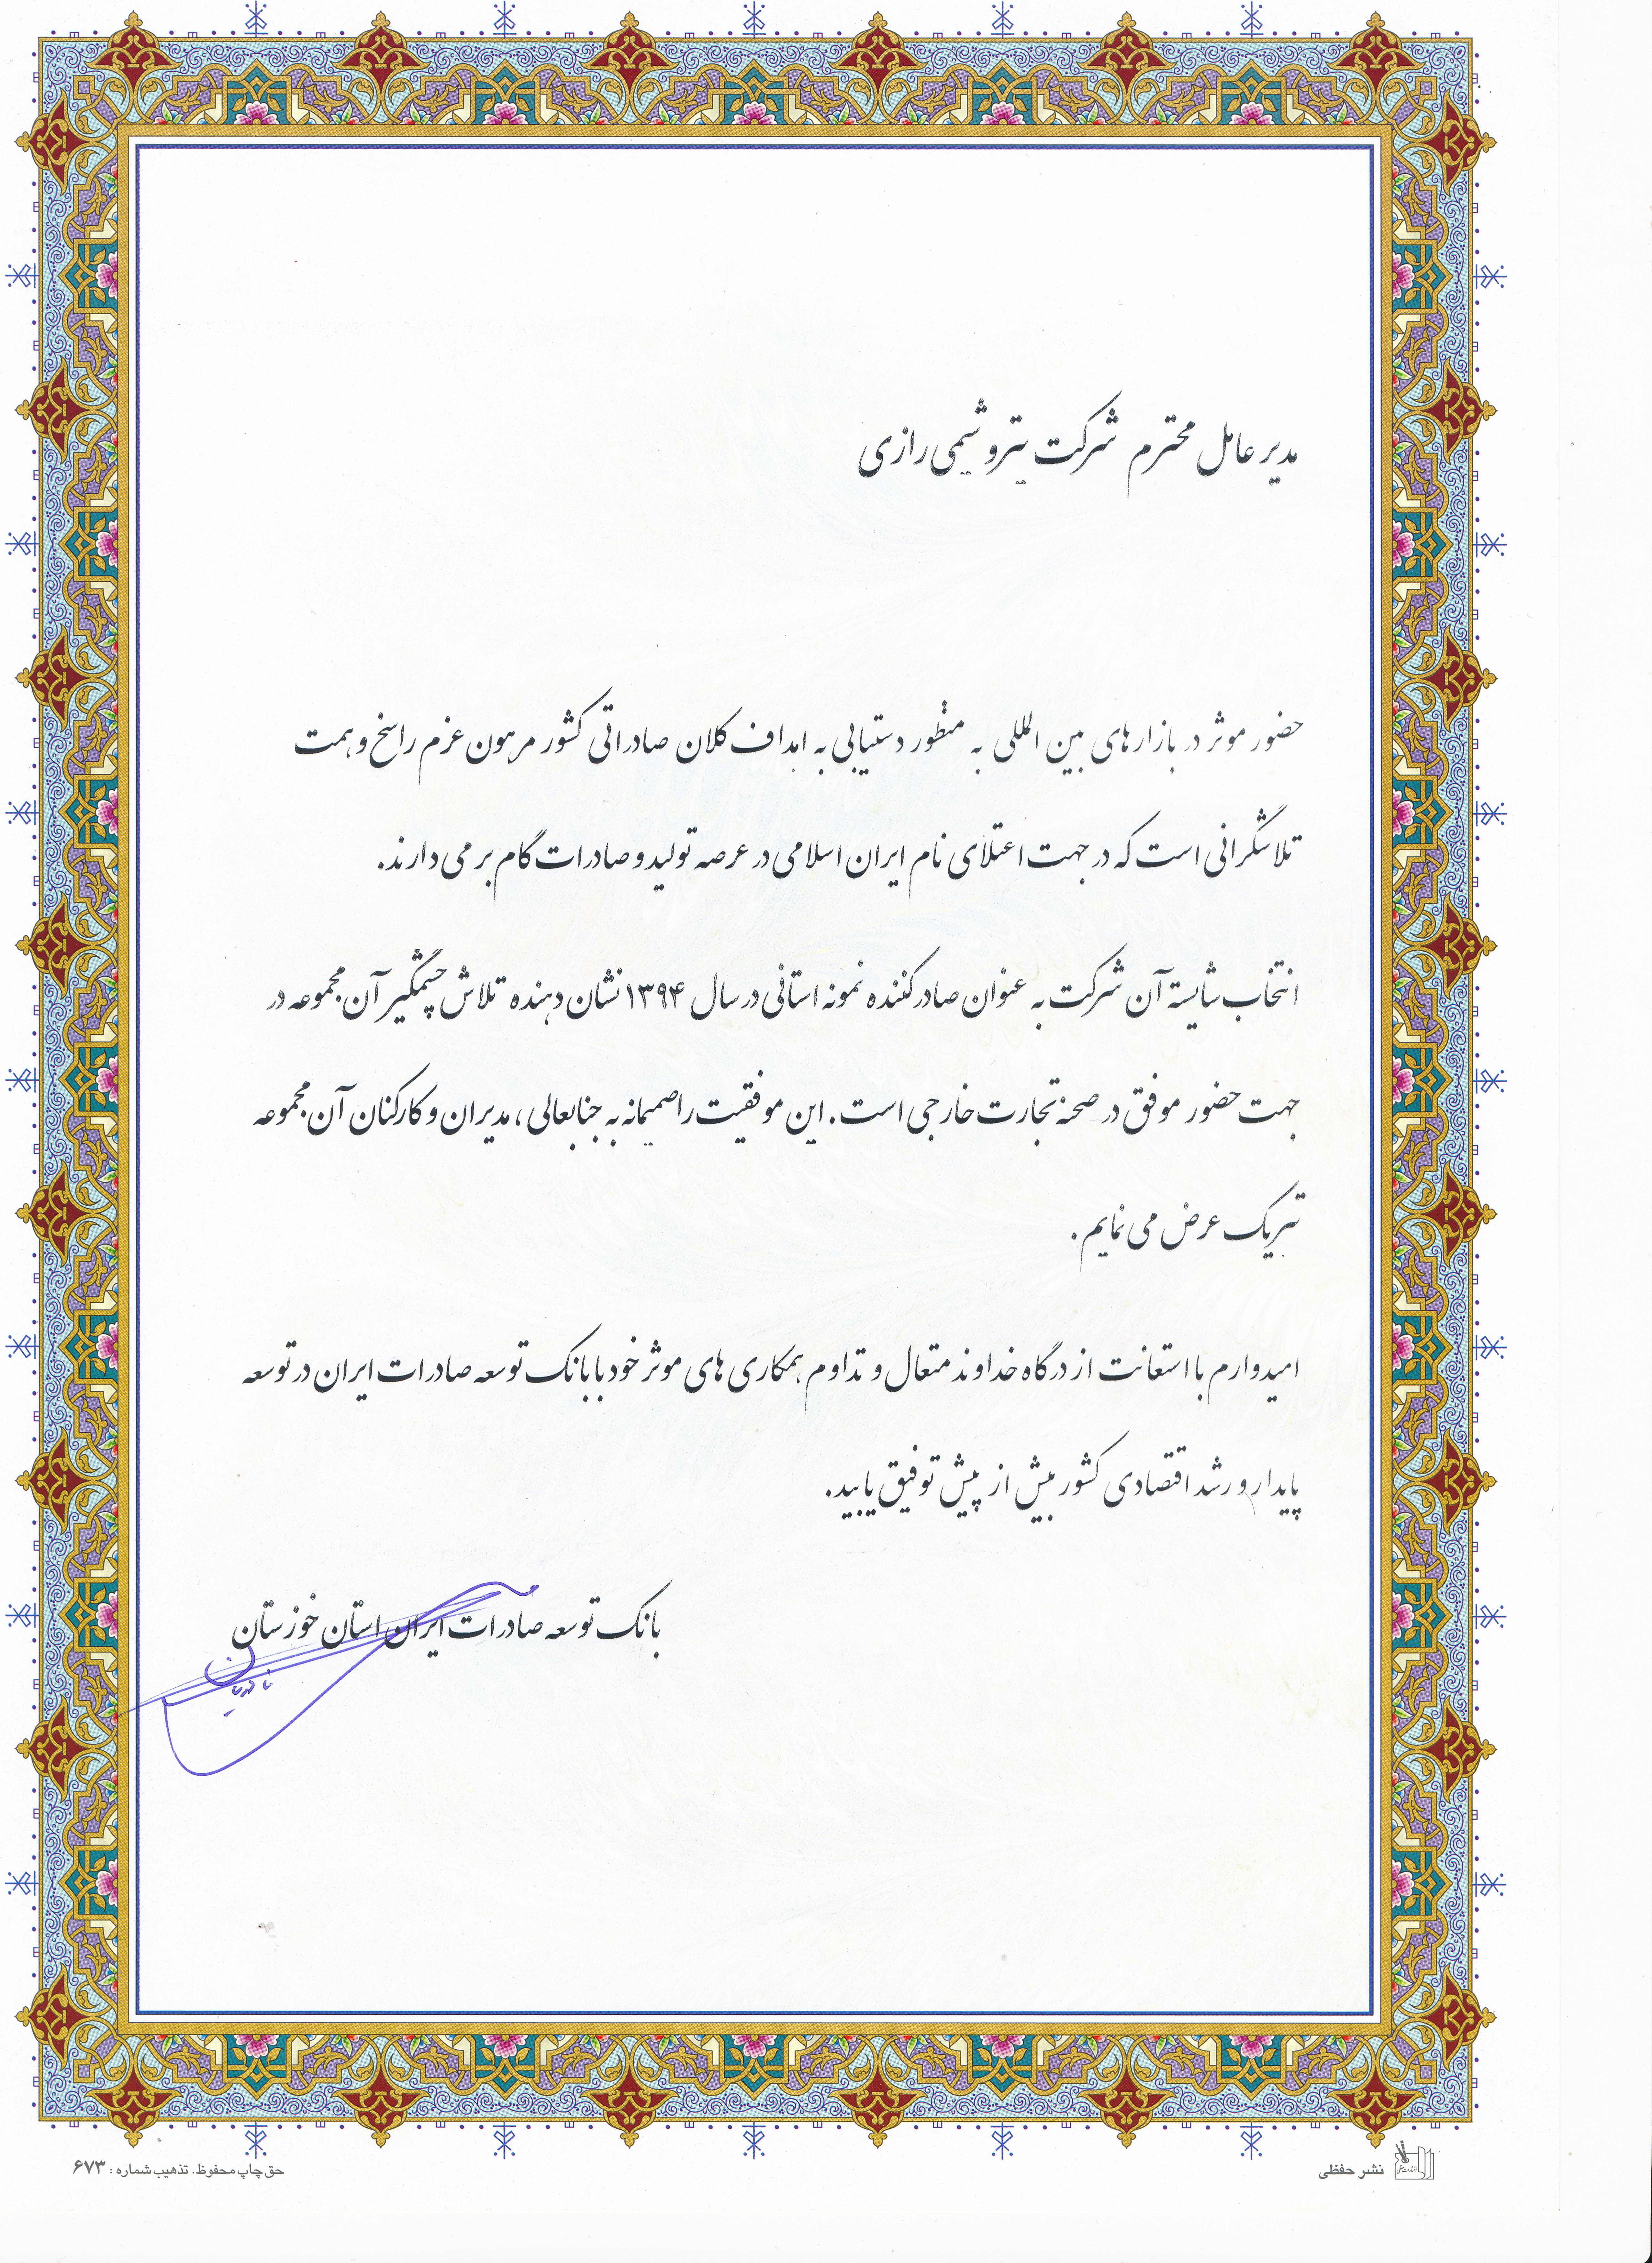 مدیر عامل محترم شرکت پتروشیمی رازی
حضور موثر در بازارهای بین المللی به منظور دستیابی به اهداف کلان صادراتی کشور مرهون عزم راسخ و همت
تلاشگرانی است که در جهت اعتلای نام ایران اسلامی در عرصه تولید و صادرات گام بر می دارند.
انتخاب شایسته آن شرکت به عنوان صادر کننده نمونه استانی در سال ۱۳۹۴ نشان دهنده تلاش چشمگیر آن مجموعه در
جهت حضور موفق در صحنه تجارت خارجی است. این موفقیت را صمیمانه به جنابعالی، مدیران و کارکنان آن مجموعه
تبریک عرض می نمایم.
امیدوارم با استعانت از درگاه خداوند متعال و تداوم همکاری های موثر خود با بانک توسعه صادرات ایران در توسعه
پایدار و رشد اقتصادی کشور بیش از پیش توفیق یابید.
بانک توسعه صادرات ایران استان خوزستان
نشر حفظی
حق چاپ محفوظ. تذهیب شماره : ۶۷۳